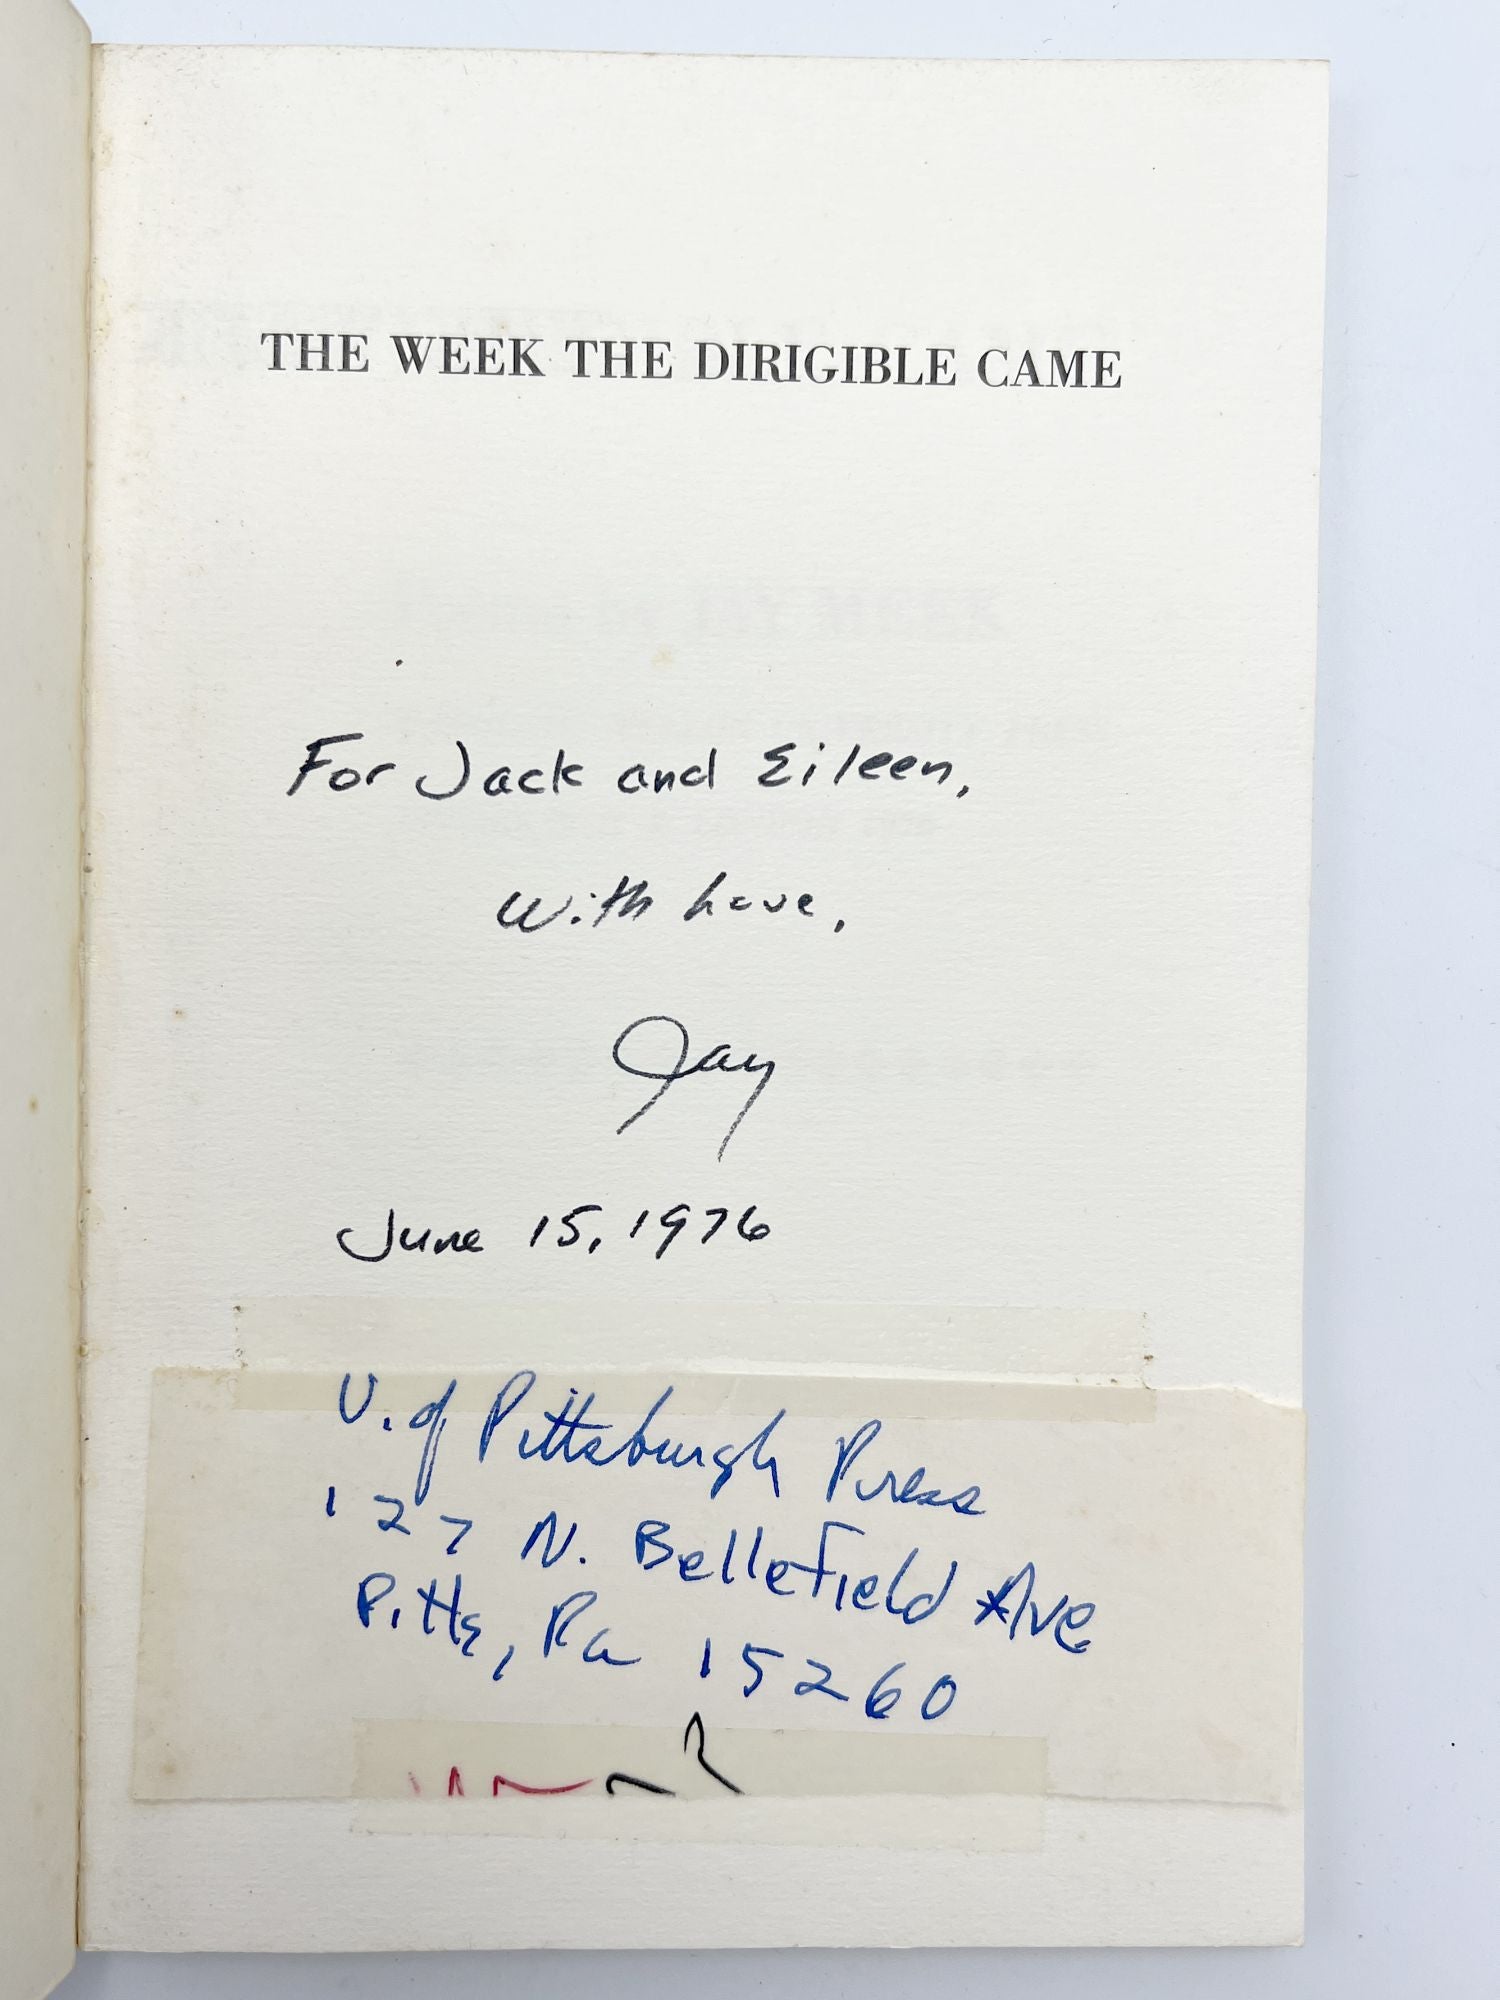 THE WEEK THE DIRIGIBLE CAME
JAY MEEK
For Jack and Eileen,
With Love,
Jay
June 15, 1976
U. of Pittsburgh Press
127 N. Bellefield Ave
Pitts, Pa 15260